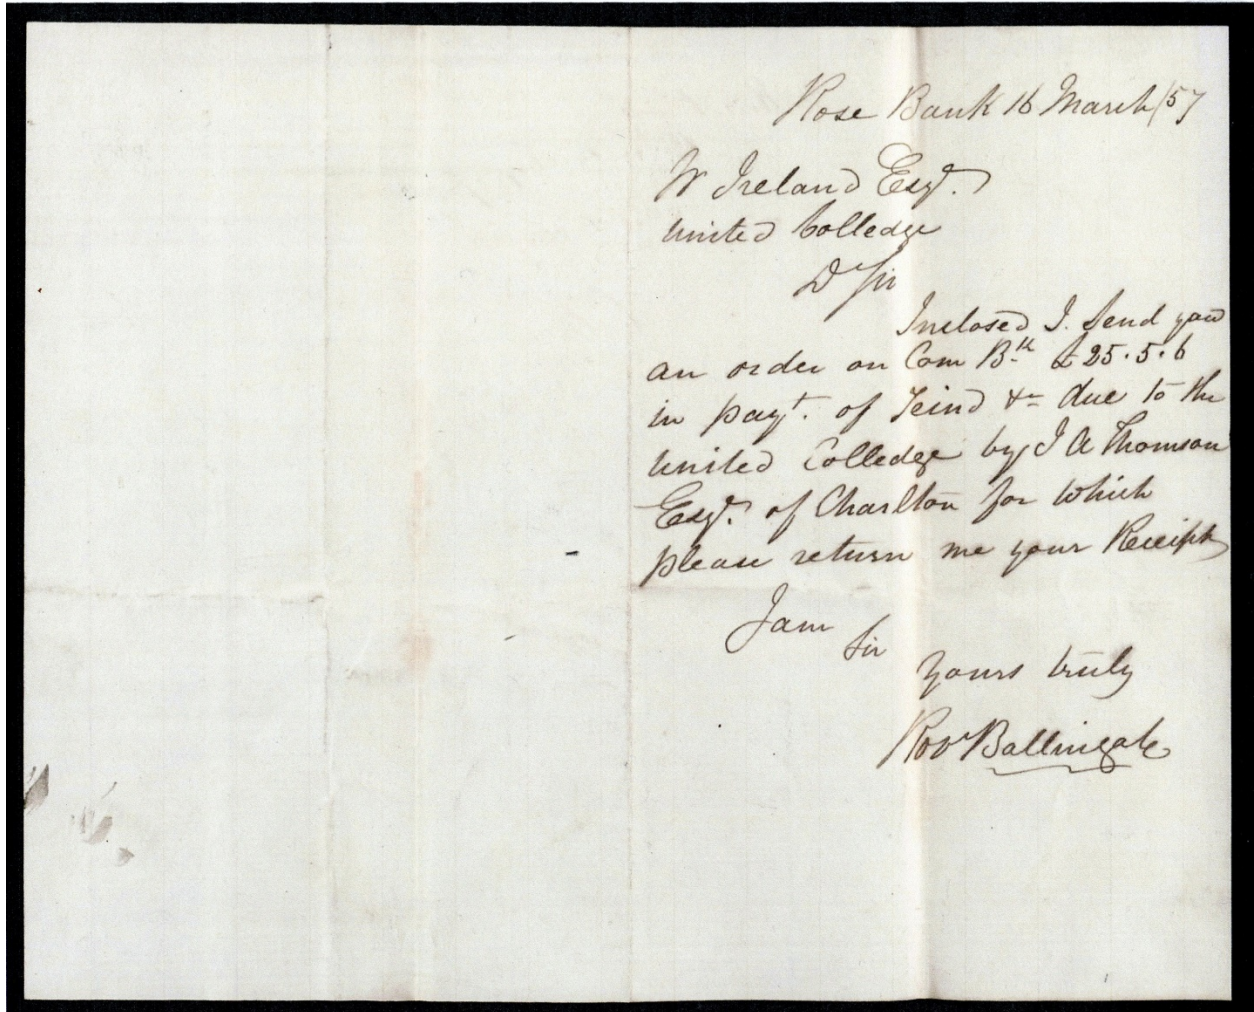 Rose Bank 16 March /57
W Ireland Esqr.
United Colledge
Dr Sir
Inclosed I. Send you
an order on Com Bk £25.5.6
in payt. of Teind &c due to the
United Colledge by J A Thomson
Esqr. of Charlton for which
please return me your Receipt
I am
Sir
yours truly
Robt Ballingale